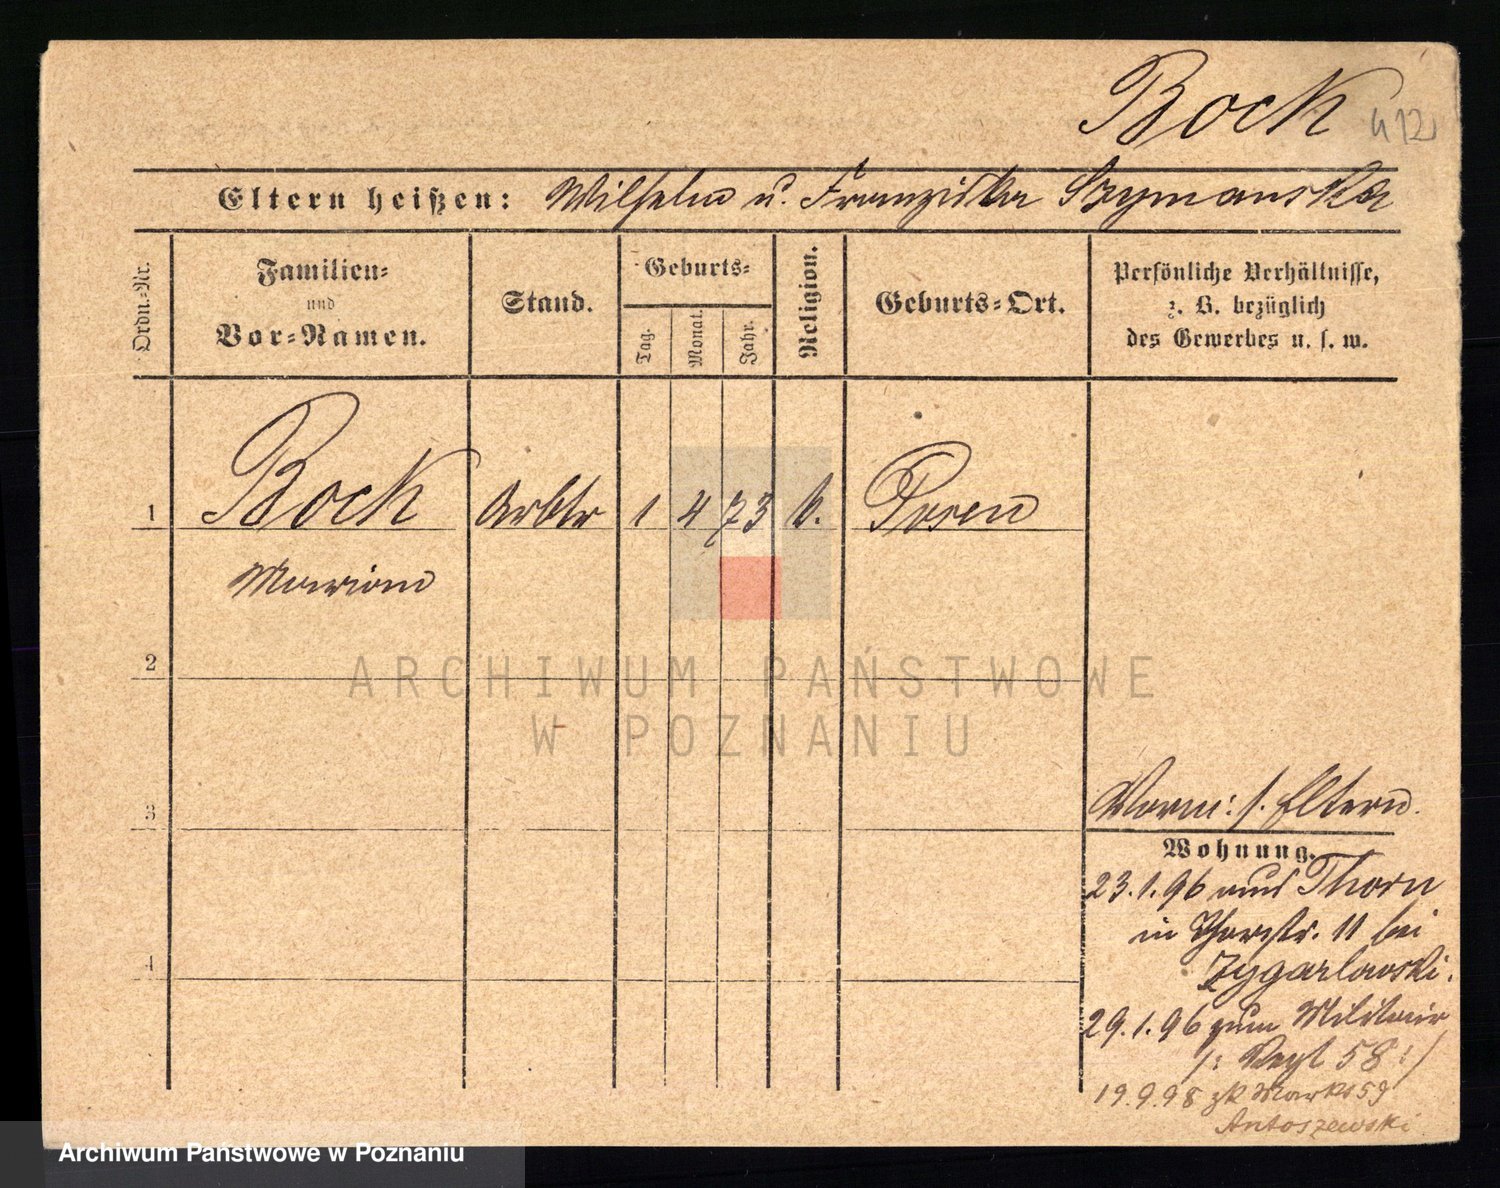 Bock
412
Eltern heißen: Wilhelm u. Franziska Szymanska
Ordn.-Nr.
Familien-
und
Vor-Namen.
Stand.
Geburts-
Tag.
Monat.
Jahr.
Religion.
Geburts-Ort.
Persönliche Verhältnisse,
z. B. bezüglich
des Gewerbes u. s. w.
1 Bock Arbtr 1 4 73 k. Posen
Marian
2
3
4
Vorm: s. Eltern.
Wohnung.
23.1.96 aus Thorn
in Thorstr. 11 bei
29.1.96 zum Militair
/: 58 :/
19.9.98 zk Markt 59
Antoszewski
ARCHIWUM PAŃSTWOWE
W POZNANIU
Archiwum Państwowe w Poznaniu